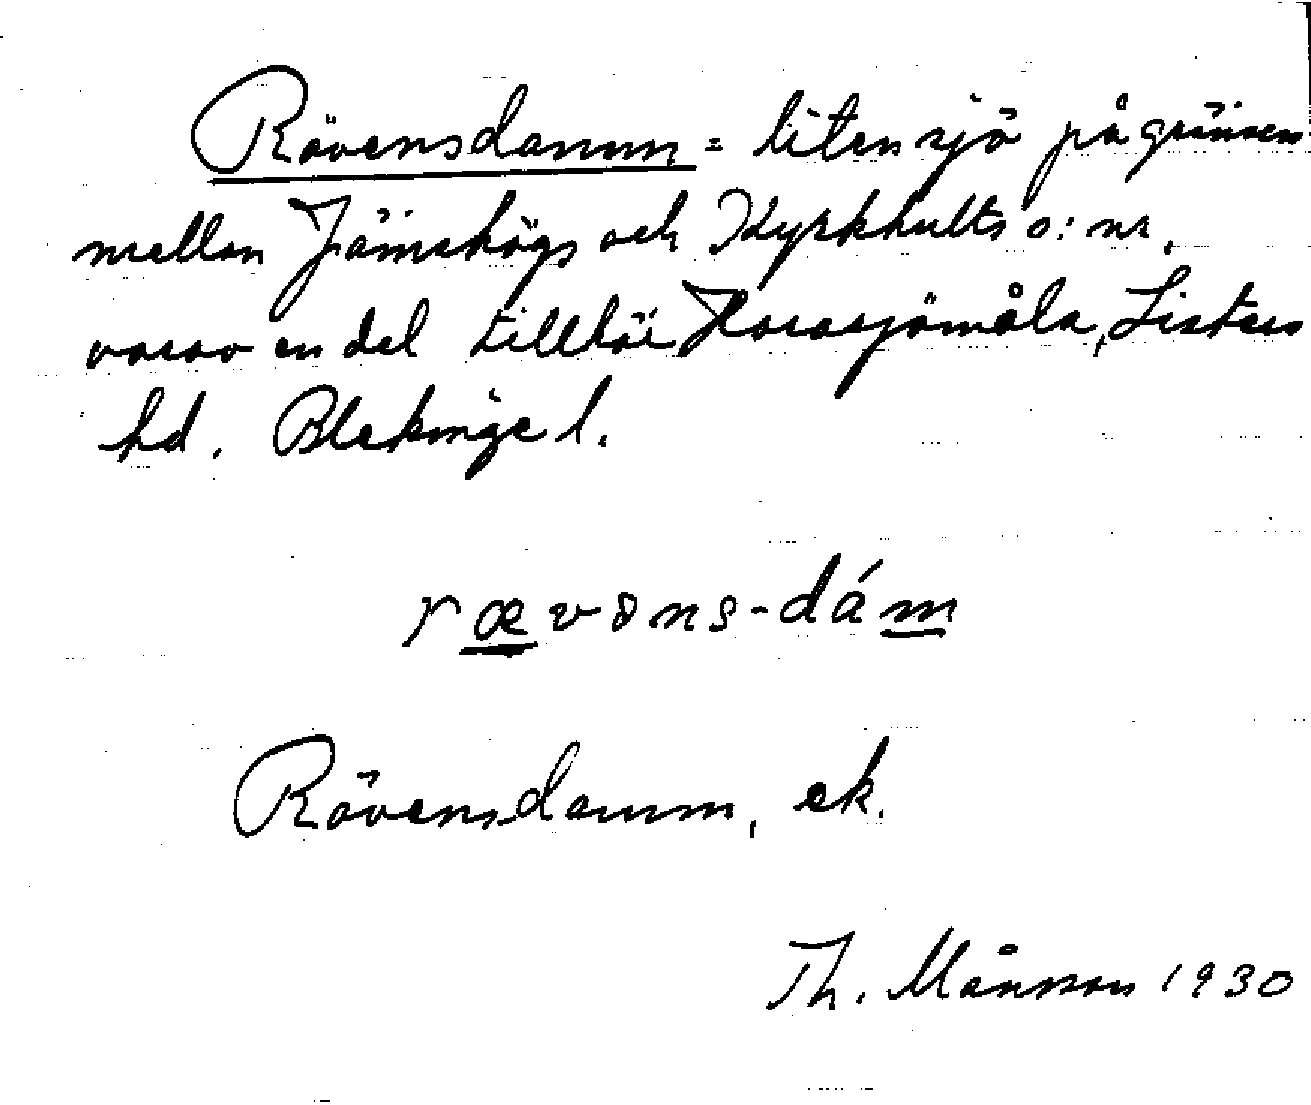 Rävensdamm = liten sjö på gränsen
mellan Jämshögs och Kyrkhults s:nr,
varav en del tillhör Horasjömåla, Listers
hd. Blekinge l.
rævəns-dám
Rävensdamm, ek.
Th. Månsson 1930